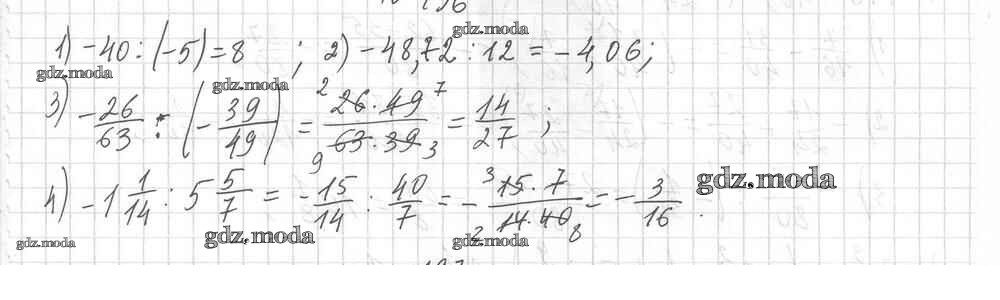 gdz.moda
1) -40 : (-5) = 8 ; 2) -48,72 : 12 = -4,06;
gdz.moda gdz.moda
3) -26/63 : (-39/49) = 2 26·49 7 / 9 63·39 3 = 14/27 ;
4) -1 1/14 : 5 5/7 = -15/14 : 40/7 = - 3 15·7 / 2 14·40 8 = -3/16 .
gdz.moda
gdz.moda gdz.moda gdz.moda